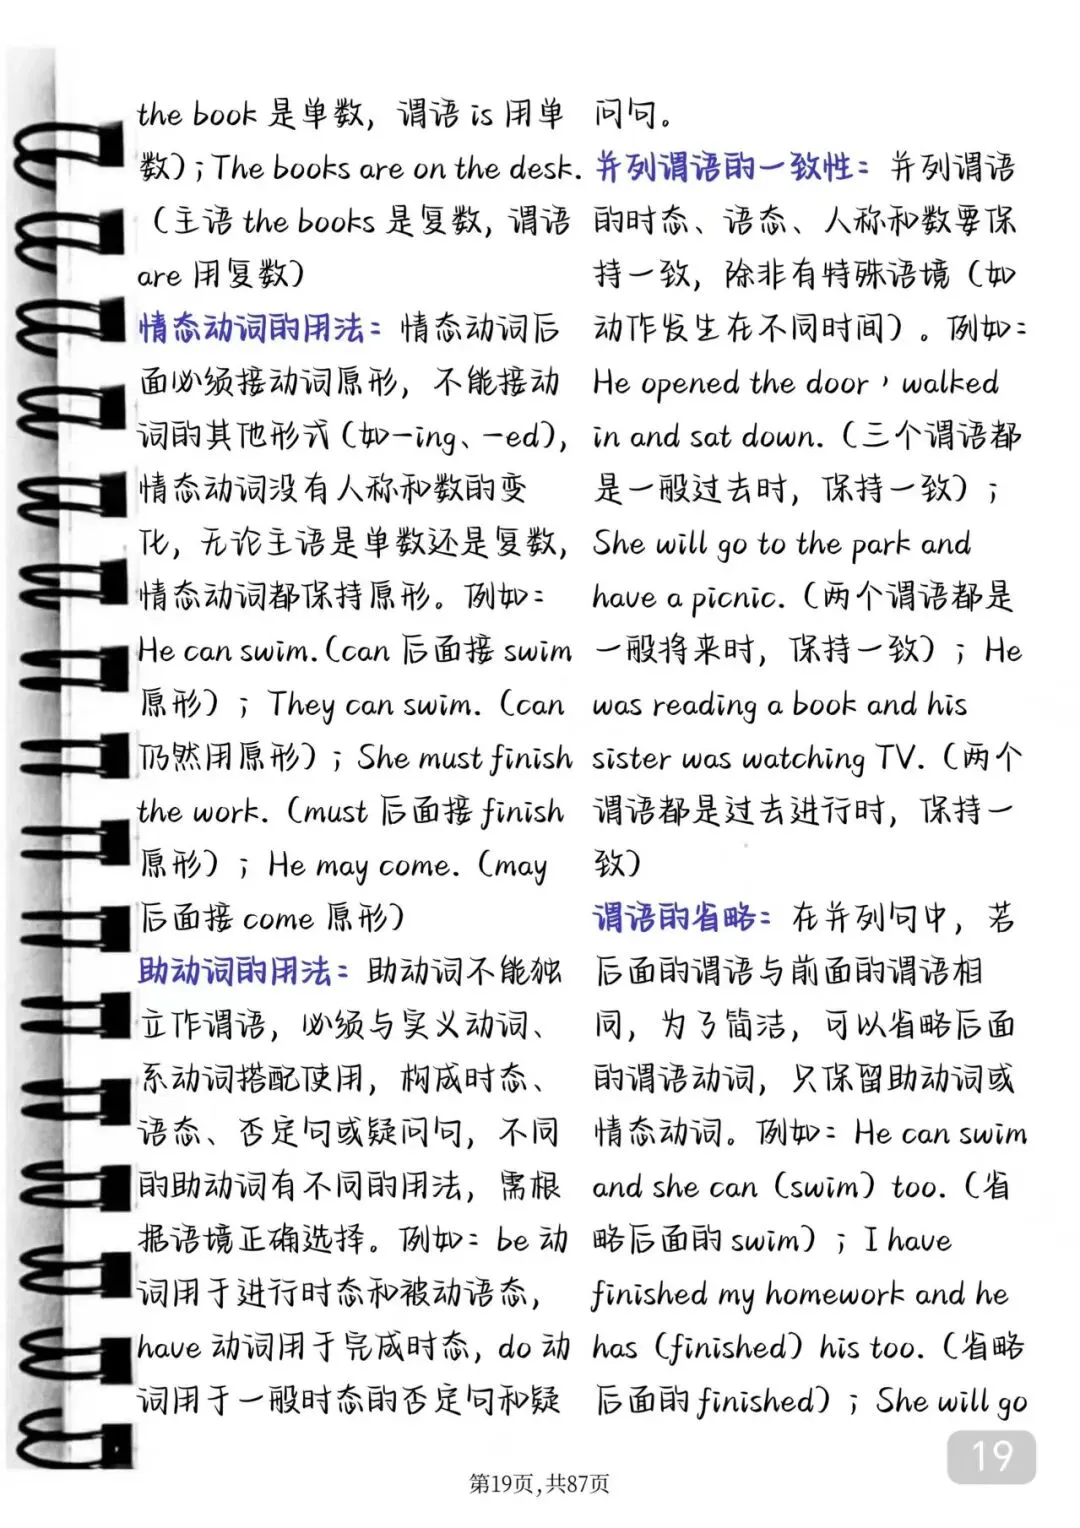 the book 是单数，谓语 is 用单
数）；The books are on the desk.
（主语 the books 是复数，谓语
are 用复数）
情态动词的用法：情态动词后
面必须接动词原形，不能接动
词的其他形式（如-ing、-ed），
情态动词没有人称和数的变
化，无论主语是单数还是复数，
情态动词都保持原形。例如：
He can swim.（can 后面接 swim
原形）；They can swim.（can
仍然用原形）；She must finish
the work.（must 后面接 finish
原形）；He may come.（may
后面接 come 原形）
助动词的用法：助动词不能独
立作谓语，必须与实义动词、
系动词搭配使用，构成时态、
语态、否定句或疑问句，不同
的助动词有不同的用法，需根
据语境正确选择。例如：be 动
词用于进行时态和被动语态，
have 动词用于完成时态，do 动
词用于一般时态的否定句和疑
问句。
并列谓语的一致性：并列谓语
的时态、语态、人称和数要保
持一致，除非有特殊语境（如
动作发生在不同时间）。例如：
He opened the door，walked
in and sat down.（三个谓语都
是一般过去时，保持一致）；
She will go to the park and
have a picnic.（两个谓语都是
一般将来时，保持一致）；He
was reading a book and his
sister was watching TV.（两个
谓语都是过去进行时，保持一
致）
谓语的省略：在并列句中，若
后面的谓语与前面的谓语相
同，为了简洁，可以省略后面
的谓语动词，只保留助动词或
情态动词。例如：He can swim
and she can（swim）too.（省
略后面的 swim）；I have
finished my homework and he
has（finished）his too.（省略
后面的 finished）；She will go
19
第19页,共87页